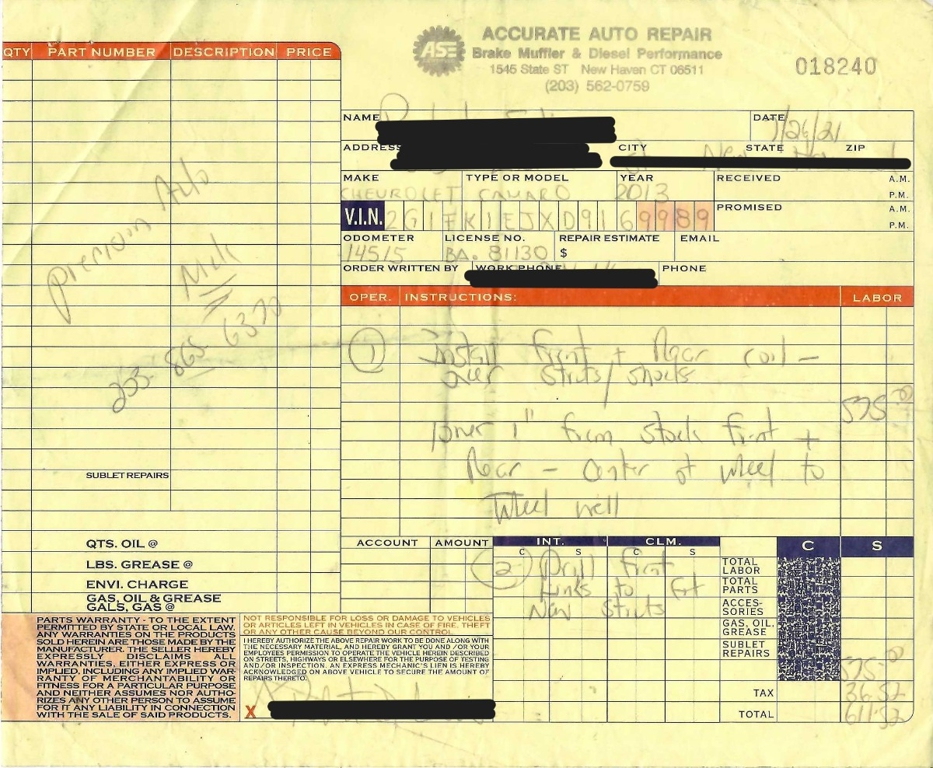 ASE
ACCURATE AUTO REPAIR
Brake Muffler & Diesel Performance
1545 State ST New Haven CT 06511
(203) 562-0759
018240
QTY PART NUMBER DESCRIPTION PRICE
NAME
DATE 1/26/21
ADDRESS CITY STATE ZIP
MAKE TYPE OR MODEL YEAR RECEIVED A.M.
CHEVROLET CAMARO 2013 P.M.
V.I.N. 2G1FK1EJXD9169989 PROMISED A.M.
P.M.
ODOMETER LICENSE NO. REPAIR ESTIMATE EMAIL
14515 BA. 81130 $
ORDER WRITTEN BY WORK PHONE PHONE
OPER. INSTRUCTIONS: LABOR
Premium Auto
203-865-6370
1 Install Front + Rear coil-
over Struts/shocks
575.00
lower 1" from stock Front +
Rear - Center of wheel to
Wheel well
SUBLET REPAIRS
QTS. OIL @
LBS. GREASE @
ENVI. CHARGE
GAS, OIL & GREASE
GALS, GAS @
ACCOUNT AMOUNT INT. CLM. C S
C S C S
2 Drill Front
Links to Fit
New Struts
TOTAL LABOR
TOTAL PARTS
ACCES-
SORIES
GAS, OIL,
GREASE
SUBLET
REPAIRS
575.00
TAX 36.52
TOTAL 611.52
PARTS WARRANTY - TO THE EXTENT
PERMITTED BY STATE OR LOCAL LAW.
ANY WARRANTIES ON THE PRODUCTS
SOLD HEREIN ARE THOSE MADE BY THE
MANUFACTURER. THE SELLER HEREBY
EXPRESSLY DISCLAIMS ALL
WARRANTIES, EITHER EXPRESS OR
IMPLIED, INCLUDING ANY IMPLIED WAR-
RANTY OF MERCHANTABILITY OR
FITNESS FOR A PARTICULAR PURPOSE
AND NEITHER ASSUMES NOR AUTHO-
RIZES ANY OTHER PERSON TO ASSUME
FOR IT ANY LIABILITY IN CONNECTION
WITH THE SALE OF SAID PRODUCTS.
NOT RESPONSIBLE FOR LOSS OR DAMAGE TO VEHICLES
OR ARTICLES LEFT IN VEHICLES IN CASE OF FIRE, THEFT
OR ANY OTHER CAUSE BEYOND OUR CONTROL.
I HEREBY AUTHORIZE THE ABOVE REPAIR WORK TO BE DONE ALONG WITH
THE NECESSARY MATERIAL, AND HEREBY GRANT YOU AND /OR YOUR
EMPLOYEES PERMISSION TO OPERATE THE VEHICLE HEREIN DESCRIBED
ON STREETS, HIGHWAYS OR ELSEWHERE FOR THE PURPOSE OF TESTING
AND/OR INSPECTION. AN EXPRESS MECHANIC'S LIEN IS HEREBY
ACKNOWLEDGED ON ABOVE VEHICLE TO SECURE THE AMOUNT OF
REPAIRS THERETO.
X